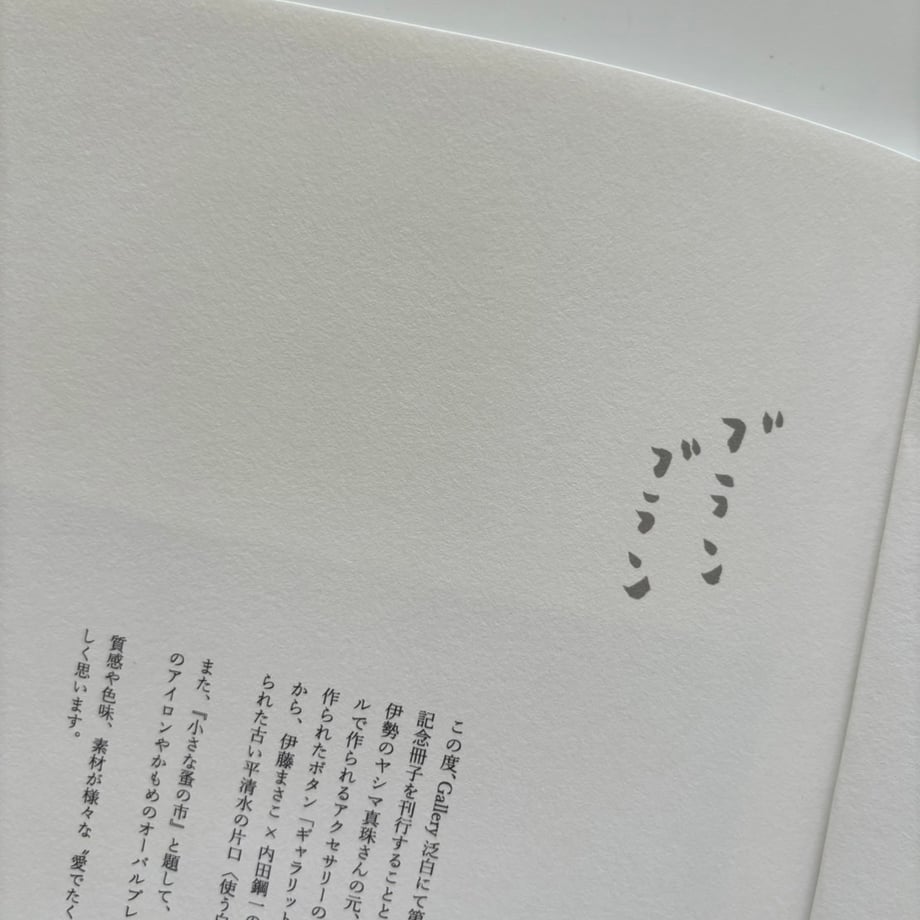 ブラン
ブラン
この度、Gallery 泛白にて第
記念冊子を刊行することと
伊勢のヤシマ真珠さんの元、
ルで作られるアクセサリーの
作られたボタン「ギャラリット
から、伊藤まさこ×内田鋼一の
られた古い平清水の片口〈使う白
また、『小さな蚤の市』と題して、
のアイロンやかもめのオーバルプレ
質感や色味、素材が様々な〝愛でたく
しく思います。